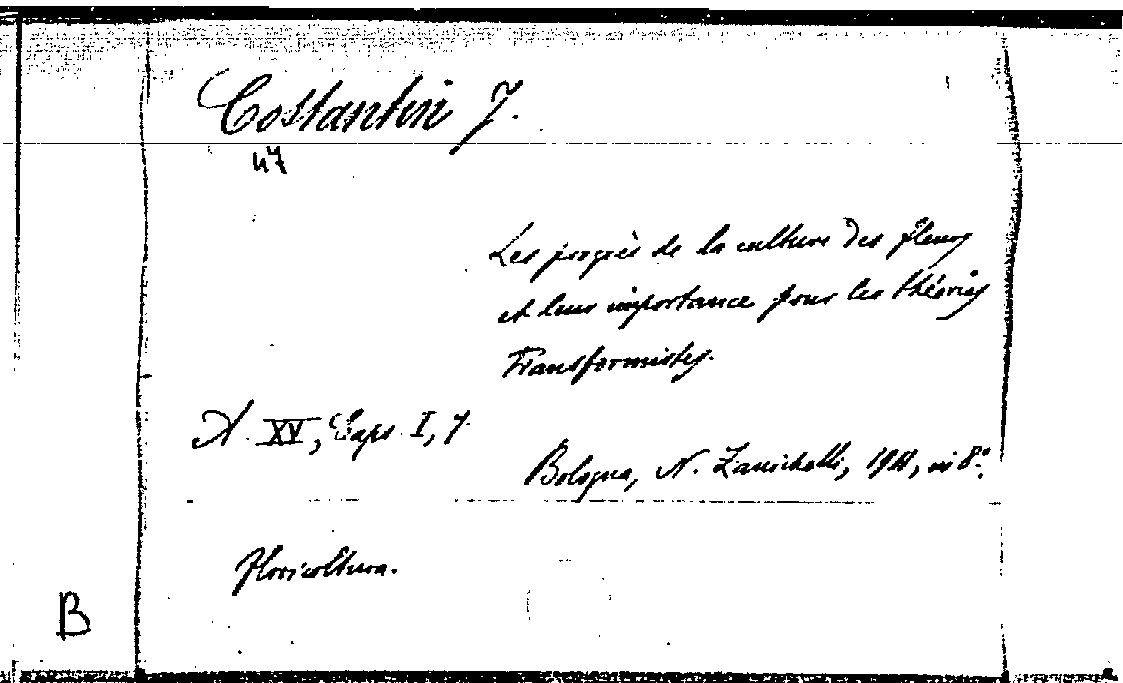 Costantin J.
47
Les progrès de la culture des fleurs
et leur importance pour les théories
Transformistes.
A. XV, Caps. I, 7
Bologna, N. Zanichelli, 1911, in 8°.
Floricoltura.
B